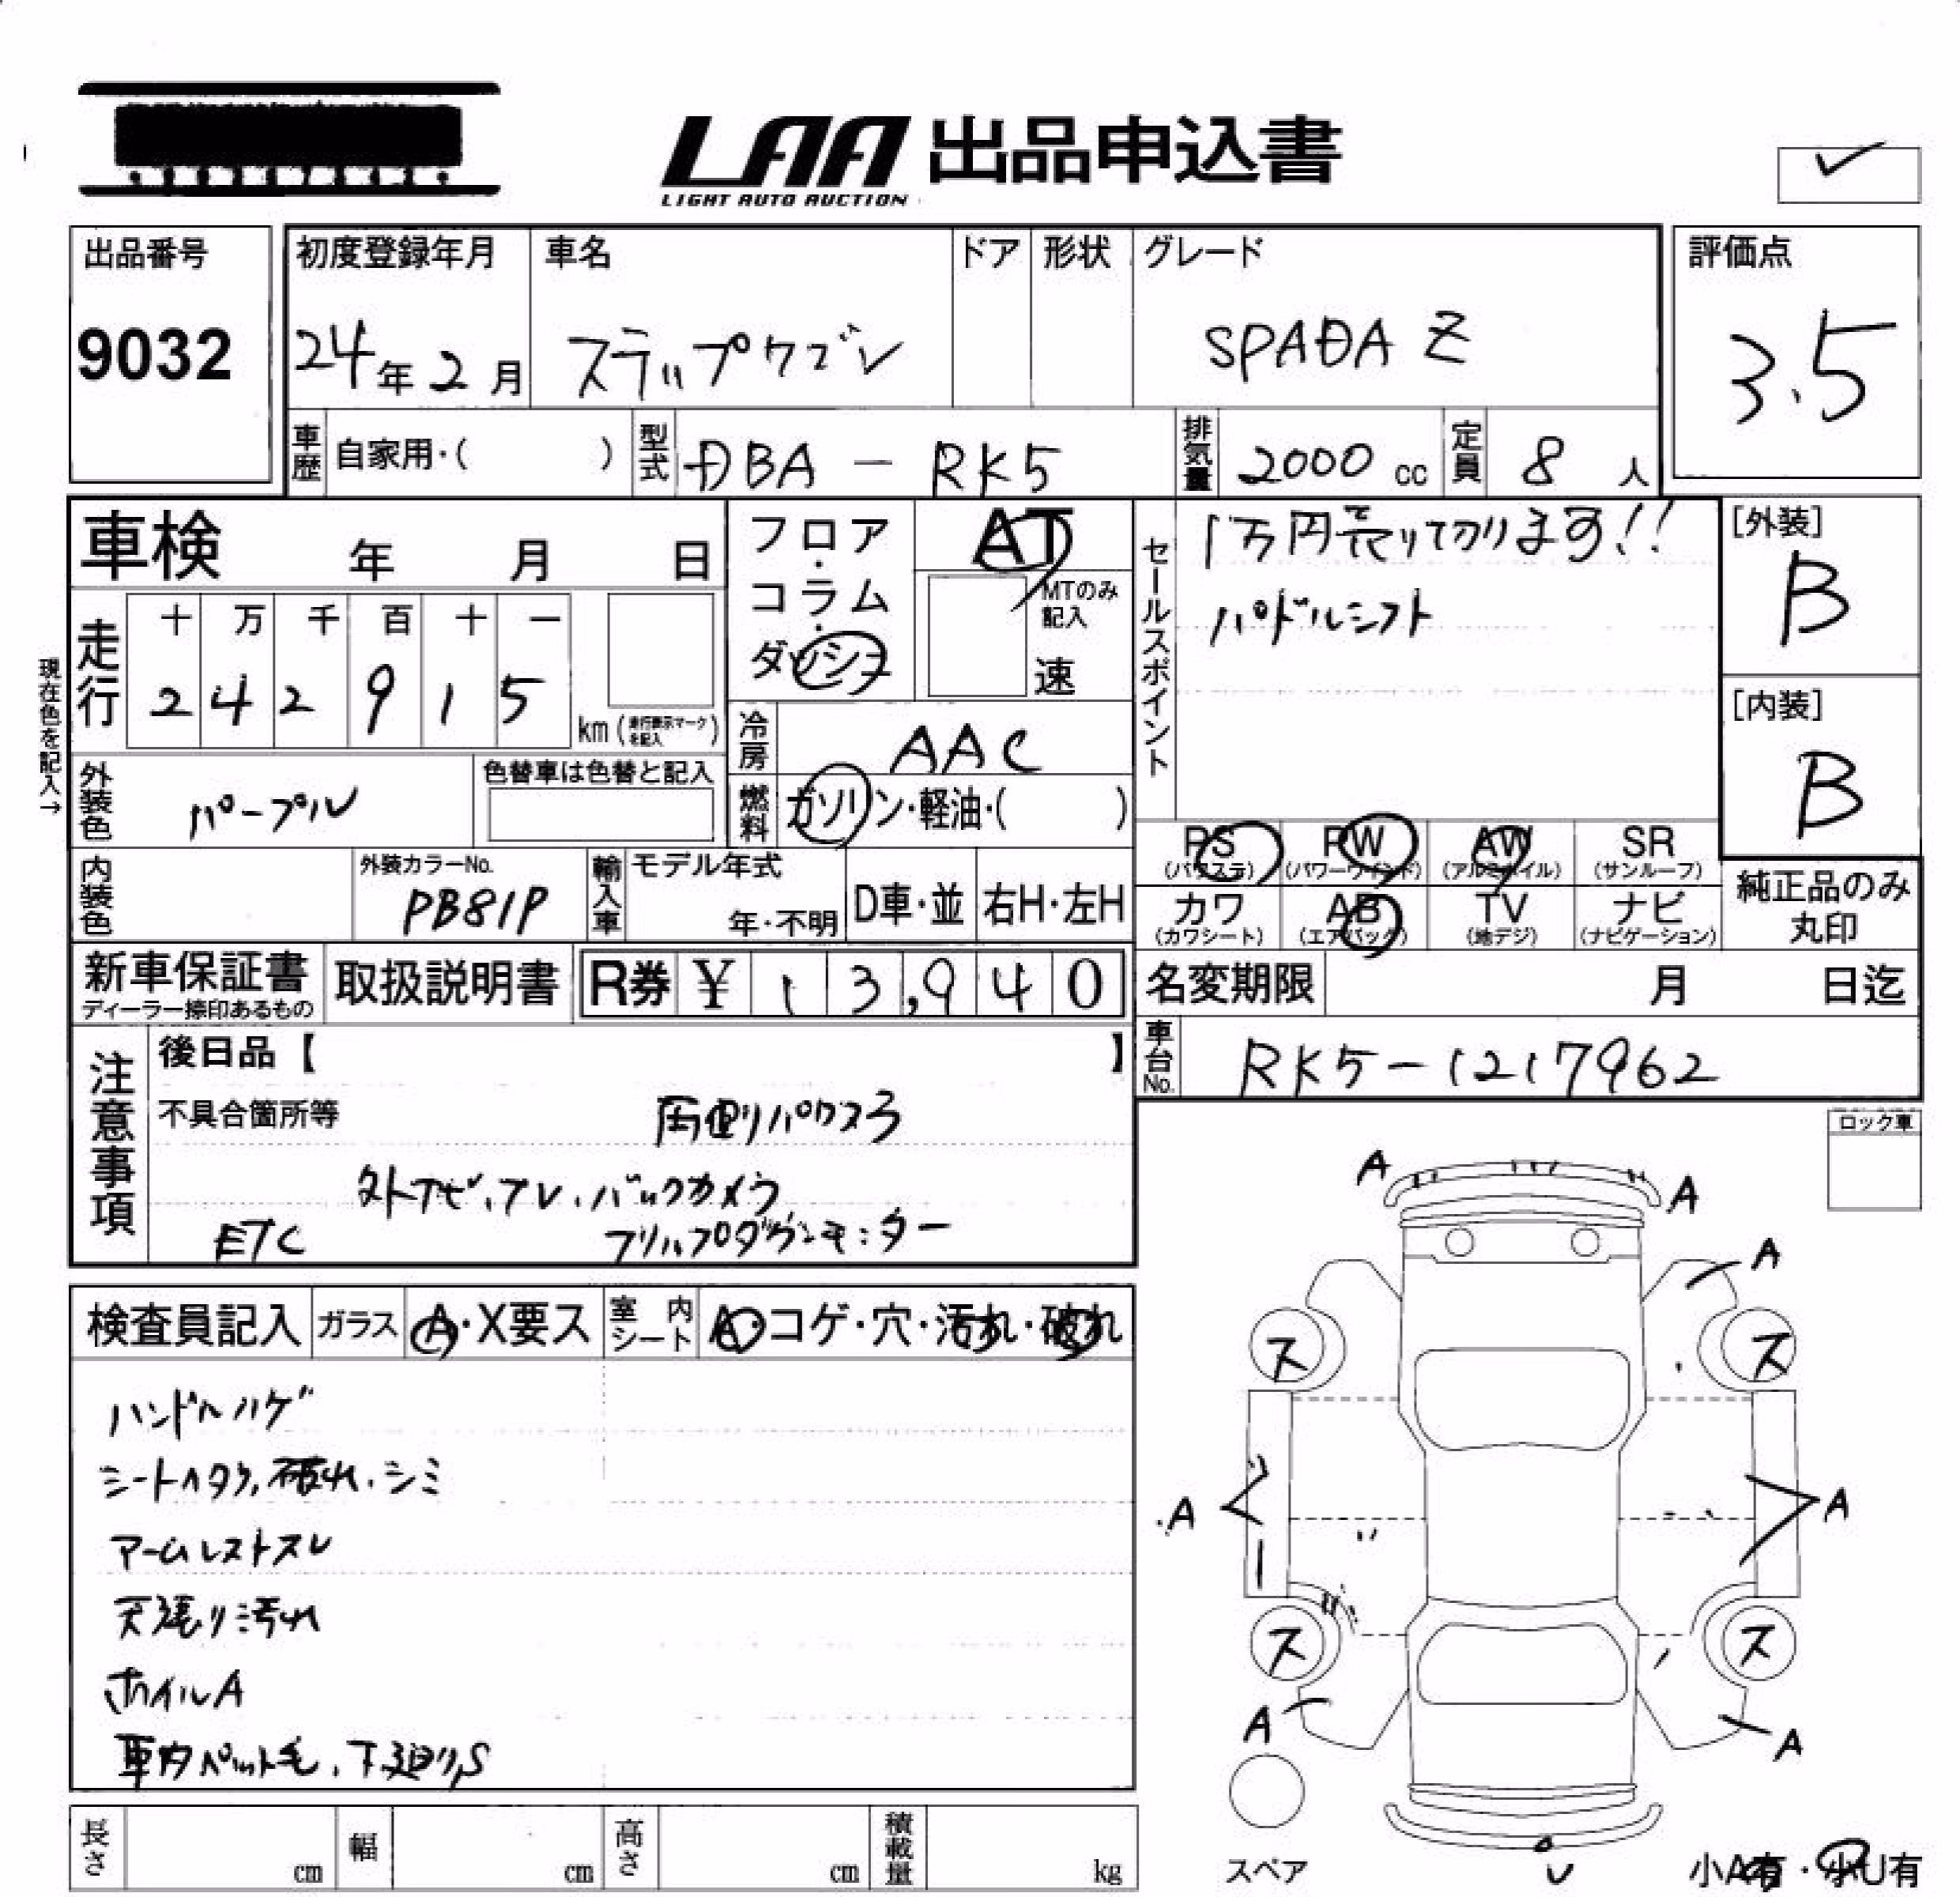 LAA 出品申込書
LIGHT AUTO AUCTION
出品番号 初度登録年月 車名 ドア 形状 グレード 評価点
9032 24年2月 ステップワゴン SPADA Z 3.5
車歴 自家用・( ) 型式 DBA - RK5 排気量 2000 cc 定員 8 人
車検 年 月 日
フロア・コラム・ダッシュ
AT
MTのみ記入
速
セールスポイント
1万円売り切ります!!
パドルシフト
[外装]
B
[内装]
B
現在色を記入→
走行 十 万 千 百 十 一
2 4 2 9 1 5 km (走行表示マークを記入)
冷房 AAC
外装色 パープル 色替車は色替と記入
燃料 ガソリン・軽油・( )
PS PW AW SR
(パワステ) (パワーウインド) (アルミホイル) (サンルーフ)
カワ AB TV ナビ
(カワシート) (エアバック) (地デジ) (ナビゲーション)
純正品のみ
丸印
内装色 外装カラーNo. PB81P 輸入車 モデル年式 年・不明 D車・並 右H・左H
新車保証書 取扱説明書 R券 ¥ 13,940
ディーラー捺印あるもの
名変期限 月 日迄
車台No. RK5-1217962
注意事項
後日品【 】
不具合箇所等 両側パワスラ
外ナビ、テレ、バックカメラ
ETC フリップダウンモニター
ロック車
検査員記入 ガラス A・X要ス 室内シート A・コゲ・穴・汚れ・破れ
ハンドルハゲ
シートヘタリ、破れ、シミ
アームレストスレ
天張り汚れ
ホイルA
車内ペット毛、下廻りS
A
A
A
ス ス
A A
ス ス
A A
スペア
U
小A有・小U有
長さ cm 幅 cm 高さ cm 積載量 kg